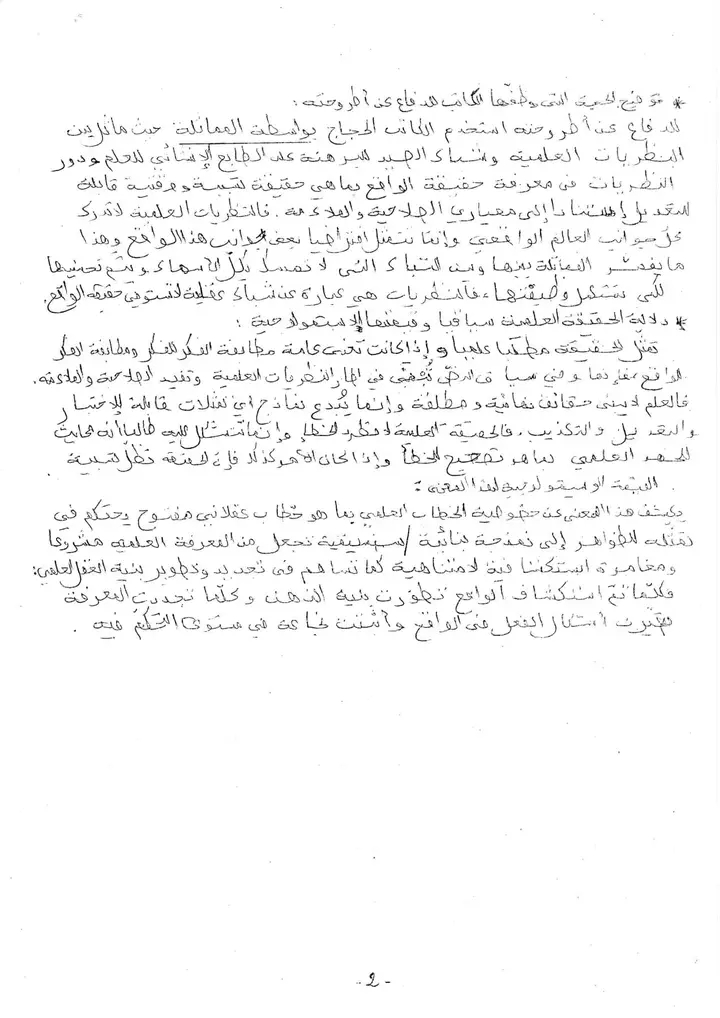 * توضيح الحجية التي وظفها الكاتب للدفاع عن أطروحته :
للدفاع عن أطروحته استخدم الكاتب الحجاج بواسطة المماثلة حيث ماثل بين
النظريات العلمية وشباك الصيد للبرهنة على الطابع الإنشائي للعلم ودور
النظريات في معرفة حقيقة الواقع بما هي حقيقة نسبية وموقتية قابلة
للتعديل إستنادا إلى معياري الصلاحية والملاءمة . فالنظريات العلمية لا تدرك
كل جوانب العالم الواقعي وإنما تتمثل افتراضيا بعض جوانب هذا الواقع وهذا
ما يفسر المماثلة بينها وبين الشباك التي لا تمسك بكل الأسماك ويتم تحسينها
لكي تستكمل وظيفتها ، فالنظريات هي عبارة عن شباك عقلية لا تستوفي حقيقة الواقع.
* دلالة الحقيقة العلمية سياقيا وقيمتها الإبستمولوجية :
تمثل الحقيقة مطلبا علميا وإذا كانت تعني عامة مطابقة الفكر للفكر ومطابقة الفكر
للواقع فإنها وفي سياق النص تُفهم في إطار النظريات العلمية وتفيد الصلاحية والملاءمة.
فالعلم لا يبني حقائق نهائية ومطلقة وإنما يُبدع نماذج أي تمثلات قابلة للإختبار
والتعديل والتكذيب . فالحقيقة العلمية لا تطرد الخطأ وإنما تتشكل طالما أنه محايث
للجهد العلمي بما هو تصحيح للخطأ وإذا كان الأمر كذلك فإن الحقيقة تظل نسبية .
القيمة الابستمولوجية لهذا المعنى :
يكشف هذا المعنى عن خصوصية الخطاب العلمي بما هو خطاب عقلاني مفتوح يحتكم في
تمثله للظواهر إلى نمذجة بنائية / تجعل من المعرفة العلمية مشروعا
ومغامرة استكشافية لا متناهية كما تساهم في تجديد وتطوير بنية العقل العلمي:
فكلما تم استكشاف الواقع تطورت بنية الذهن وكلما تجددت المعرفة
تغيرت أشكال الفعل في الواقع وأثبتت نجاعة في مستوى التحكم فيه .
- 2 -